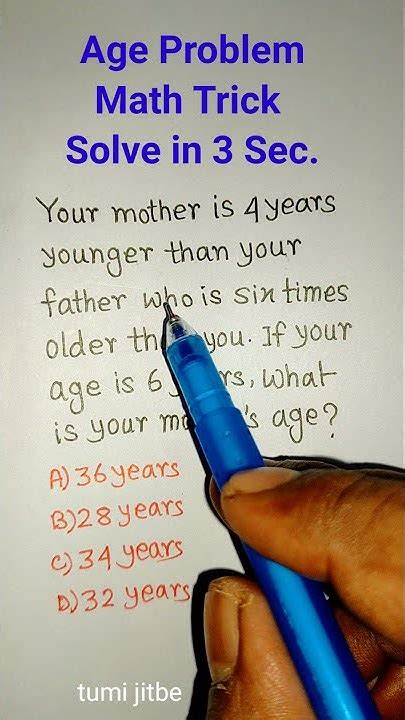 Age Problem
Math Trick
Solve in 3 Sec.
Your mother is 4 years
younger than your
father who is six times
older you. If your
age is 6 , what
is your age?
A) 36 years
B) 28 years
C) 34 years
D) 32 years
tumi jitbe